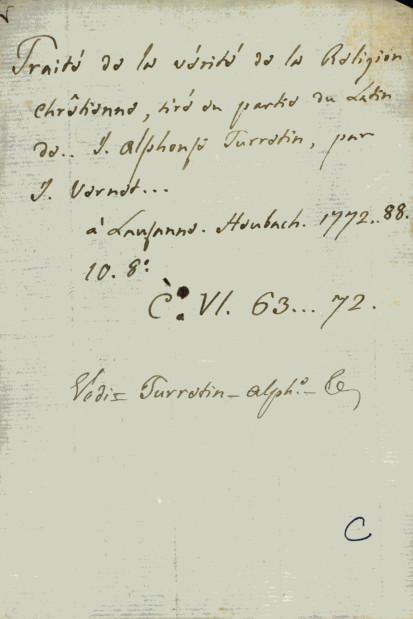 Traité de la vérité de la Religion
chrêtienne, tiré en partie du Latin
de.. J. Alphonse Turretin, par
J. Vernet...
à Lausanne. Heubach. 1772..88.
10. 8.º
C. VI. 63... 72.
Turretin - alph.º
C